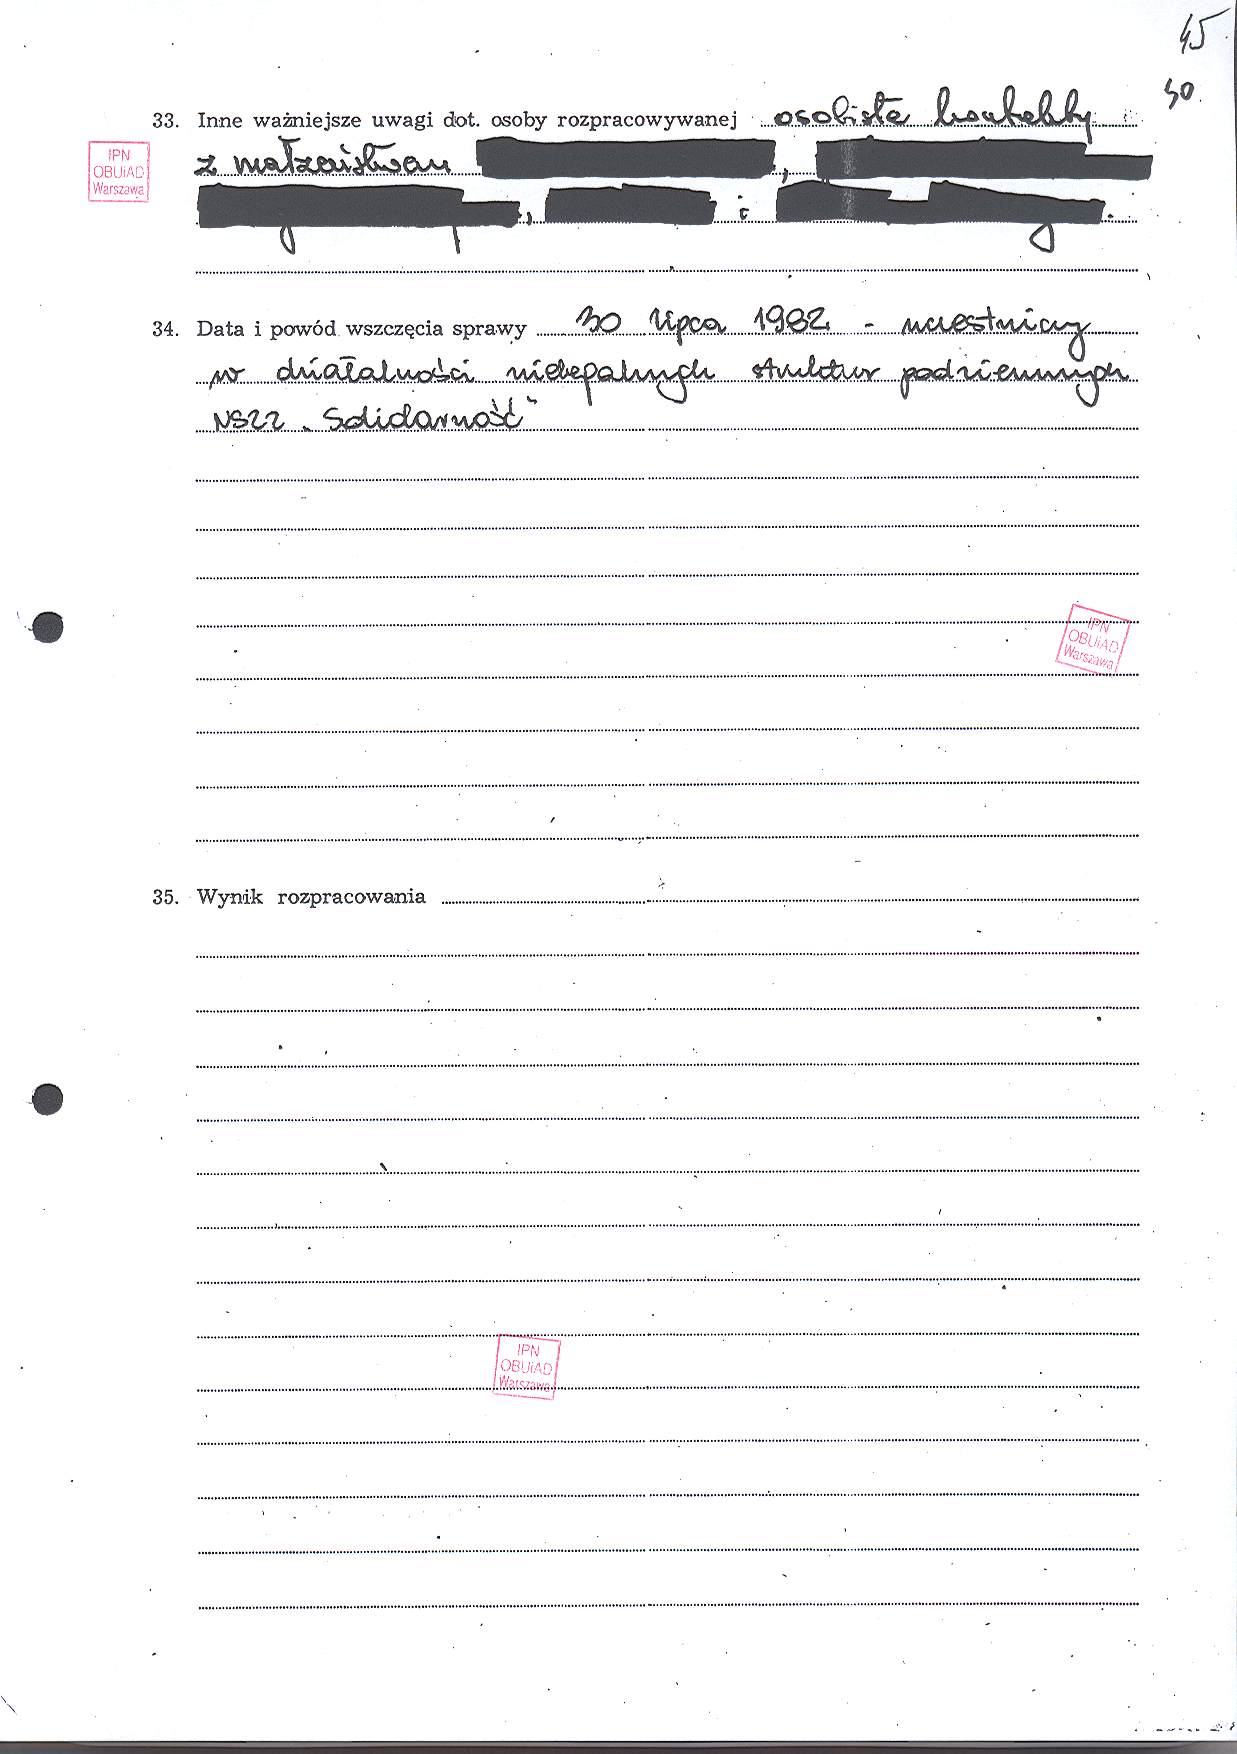 45
30
33. Inne ważniejsze uwagi dot. osoby rozpracowywanej osobiste kontakty
IPN
OBUiAD
Warszawa
z małżeństwem , 
, i .
34. Data i powód wszczęcia sprawy 30 lipca 1982 - uczestniczy
w działalności nielegalnych struktur podziemnych
NSZZ „Solidarność"
IPN
OBUiAD
Warszawa
35. Wynik rozpracowania
IPN
OBUiAD
Warszawa